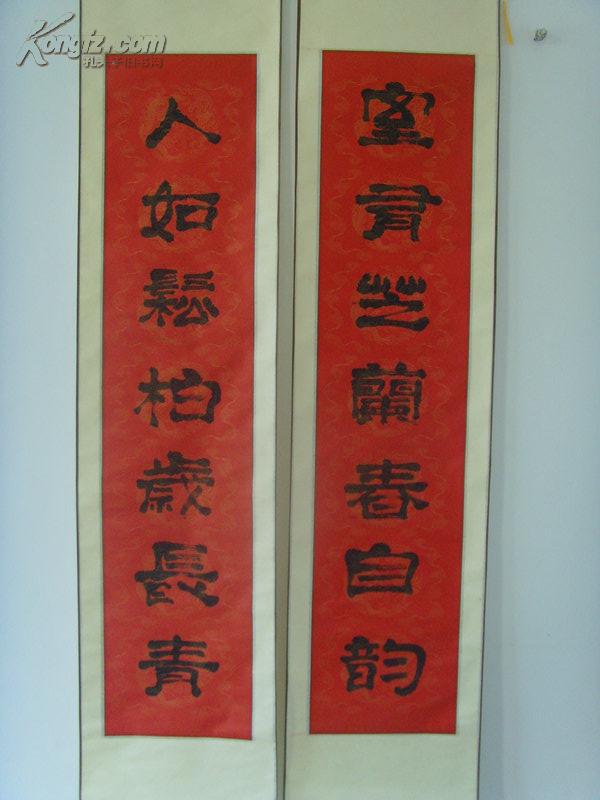 室有芝蘭春自韵
人如鬆柏歲長青
Kongfz.com
孔夫子旧书网